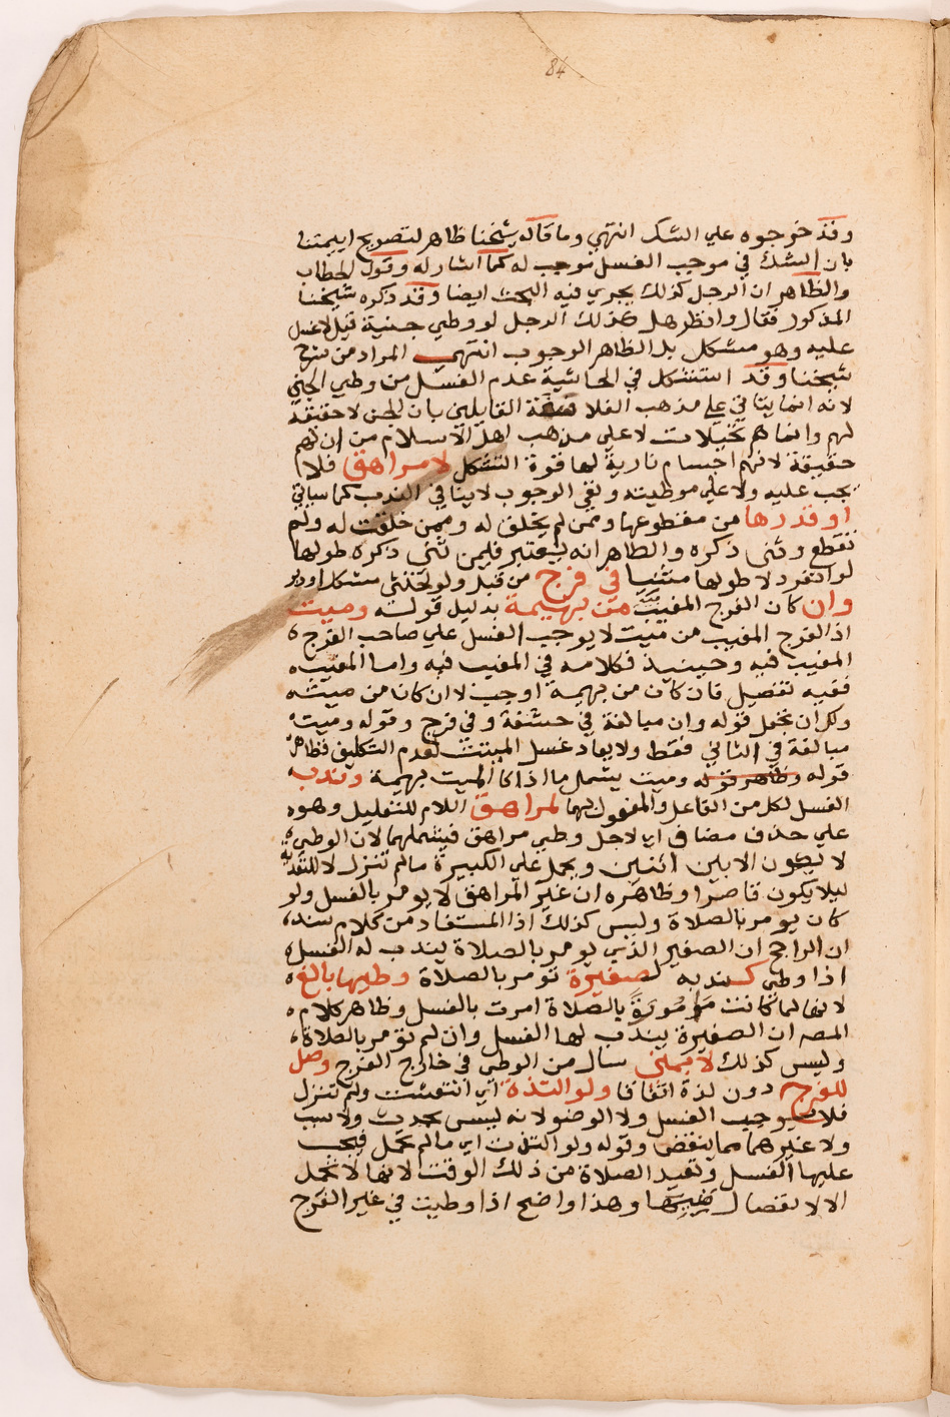 84
وقد خرجوه علي الشك انتهي وما قاله شيخنا ظاهر لتصريح ايمتنا
بان الشك في موجب الغسل موجب له كما اشار له وقول الحطاب
والظاهر ان الرجل كذلك يجري فيه البحث ايضا وقد ذكره شيخنا
المذكور فقال وانظر هل كذلك الرجل لو وطي جنية قيل لا غسل
عليه وهو مشكل بل الظاهر الوجوب انتهي المراد من شرح
شيخنا وقد استشكل في الحاشية عدم الغسل من وطي الجني
لانه انما يتاتي علي مذهب الفلاسفة القايلين بان الجن لا حقيقة
لهم وانما هم تخيلات لا علي مذهب اهل الاسلام من ان لهم
حقيقة لانهم اجسام نارية لها قوة التشكل لا مراهق فلا
يجب عليه ولا علي موطيته ونفي الوجوب لا ينافي الندب كما سياتي
او قدرها من مقطوعها وممن لم يخلق له وممن خلقت له ولم
تقطع وثني ذكره والظاهر انه يعتبر فيمن ثني ذكره طولها
لو انفرد لا طولها مثنيا في فرج من قبل ولو لخنثي مشكل او دبر
وان كان الفرج المغيب فيه من بهيمة بدليل قوله وميت
اذ الفرج المغيب من ميت لا يوجب الغسل علي صاحب الفرج ه
المغيب فيه وحينيذ فكلامه في المغيب فيه واما المغيب ه
ففيه تفصيل فان كان من بهيمة اوجب لا ان كان من ميت ه
ولك ان تجعل قوله وان مبالغة في حشفة وفي فرج وقوله وميت
مبالغة في الثاني فقط ولا يعاد غسل الميت لعدم التكليف فظاهر
قوله وظاهر قوله وميت يشمل ما اذا كان الميت بهيمة وندب
الغسل لكل من الفاعل والمفعول بهما لمراهق اللام للتعليل وهوه
علي حذف مضاف اي لاجل وطي مراهق فيشملهما لان الوطي ه
لا يكون الا بين اثنين ويحمل علي الكبيرة ما لم تنزل لا للتعدية
ليلا يكون قاصرا وظاهره ان غير المراهق لا يومر بالغسل ولو
كان يومر بالصلاة وليس كذلك اذ المستفاد من كلام سند،
ان الراجح ان الصغير الذي يومر بالصلاة يندب له الغسل ه
اذا وطي كندبه لصغيرة تومر بالصلاة وطيها بالغ ه
لانها لما كانت مامورة بالصلاة امرت بالغسل وظاهر كلام ه
المصه ان الصغيرة يندب لها الغسل وان لم تومر بالصلاة،
وليس كذلك لا بمني سال من الوطي في خارج الفرج وصل
للفرج دون لذة اتفاقا ولو التذة اي انتعشت ولم تنزل
فلا يوجب الغسل ولا الوضو لانه ليس بحدث ولا سبب
ولا غيرهما مما ينقض وقوله ولو التذت اي ما لم تحمل فيجب
عليها الغسل وتعيد الصلاة من ذلك الوقت لانها لا تحمل
الا لانفصال منيها وهذا واضح اذا وطيت في غير الفرج